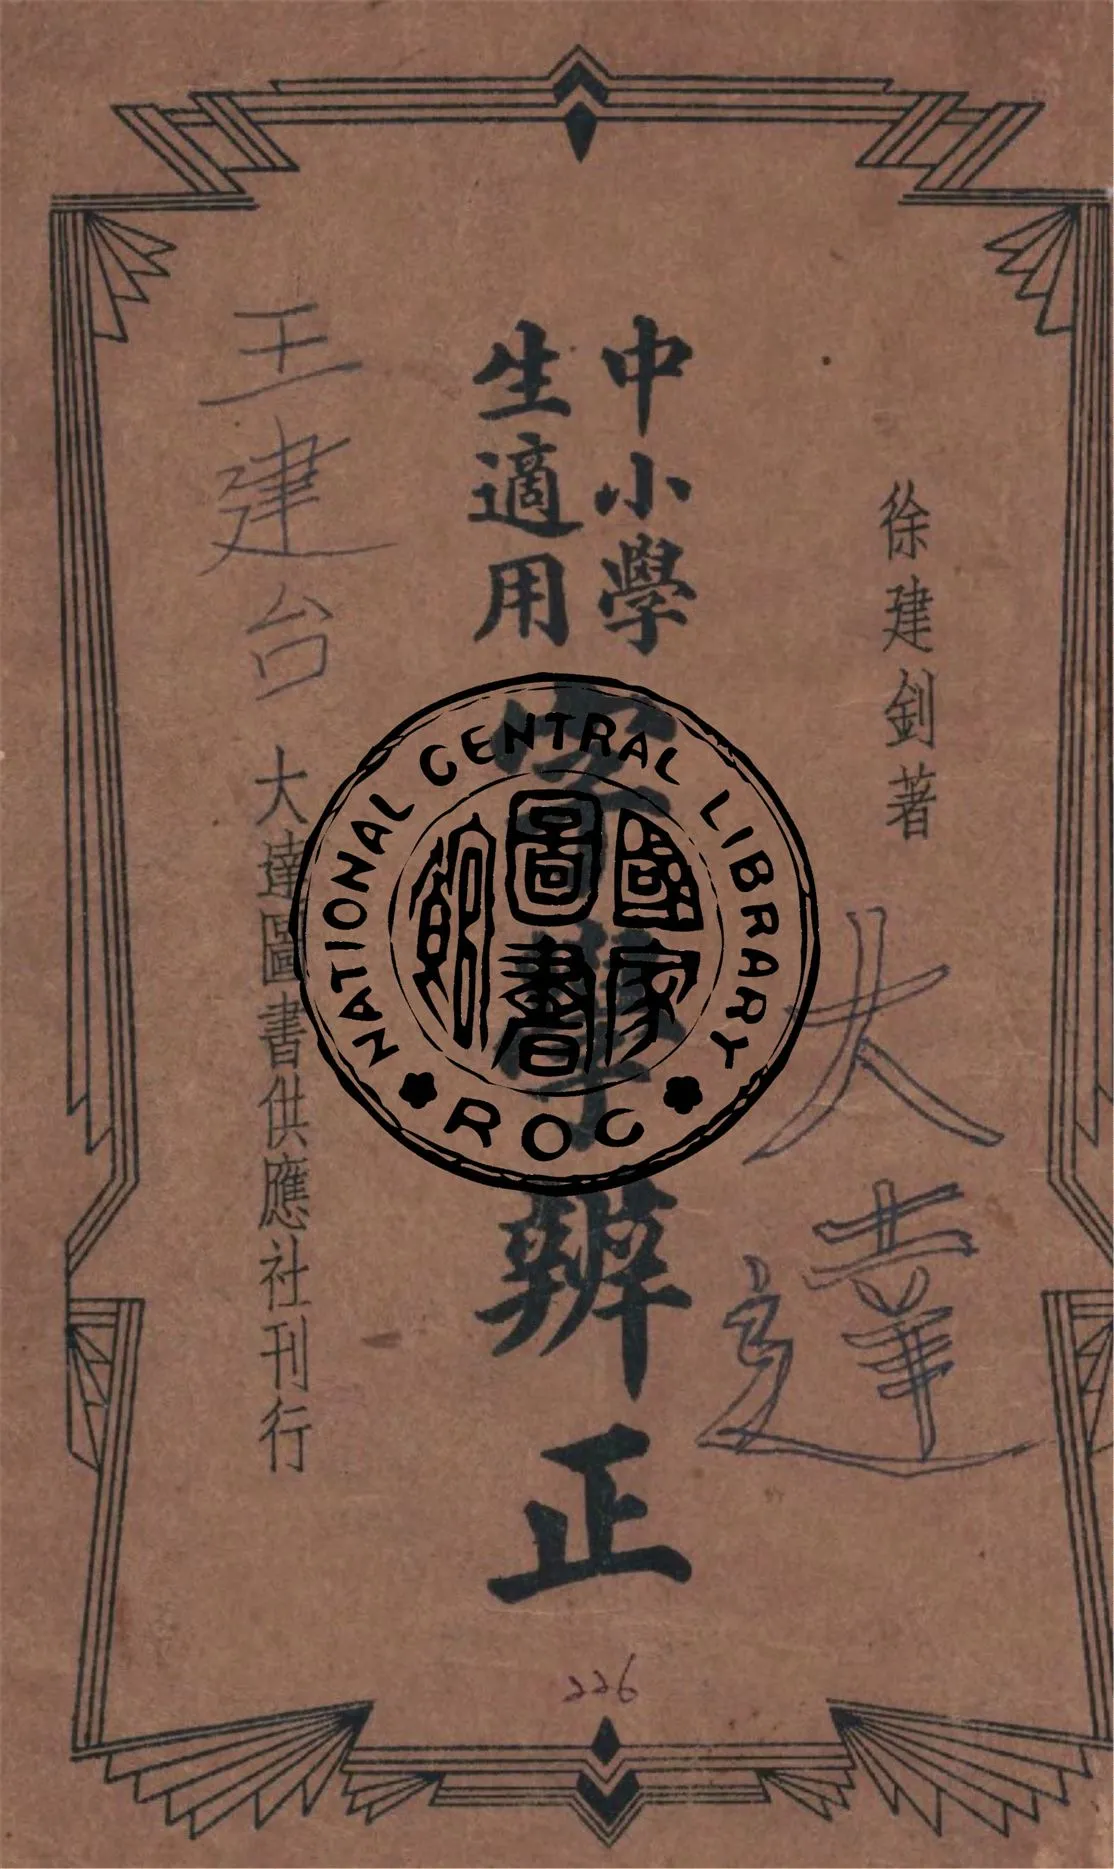 徐建釗著
大達
中小學
生適用
字學辨正
大達圖書供應社刊行
王建台
NATIONAL CENTRAL LIBRARY
國家
圖書
館
ROC
226